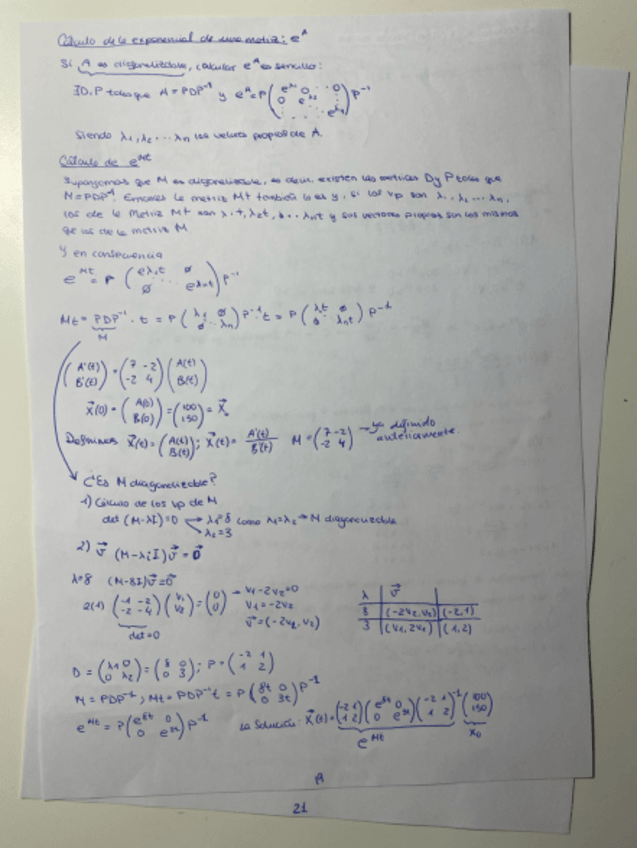 Cálculo de la exponencial de una matriz: e^A
Si A es diagonalizable, calcular e^A es sencillo:
∃D,P tales que A = PDP⁻¹ y e^A = P (e^λ₁ 0 ... 0 / 0 e^λ₂ ... / ... e^λn) P⁻¹
Siendo λ₁, λ₂ ... λn los valores propios de A.
Cálculo de e^Mt
Supongamos que M es diagonalizable, es decir, existen las matrices D y P tales que
M = PDP⁻¹. Entonces la matriz Mt también lo es y, si los vp son λ₁, λ₂ ... λn,
los de la Matriz Mt son λ₁t, λ₂t, ... λnt y sus vectores propios son los mismos
que los de la matriz M
Y en consecuencia
e^Mt = P (e^λ₁t ∅ / ∅ ... e^λnt) P⁻¹
Mt = PDP⁻¹ · t = P (λ₁ ∅ / ∅ ... λn) P⁻¹ · t = P (λ₁t ∅ / ∅ ... λnt) P⁻¹
M
(A'(t) / B'(t)) = (7 -2 / -2 4) (A(t) / B(t))
X⃗(0) = (A(0) / B(0)) = (100 / 150) = X⃗₀
Definimos X⃗(t) = (A(t) / B(t)); X⃗(t) = A'(t) / B'(t) M = (7 -2 / -2 4) → ya definido anteriormente.
¿Es M diagonalizable?
1) Cálculo de los vp de M
det (M-λI)=0 → λ₁=8 como λ₁≠λ₂ → M diagonalizable
λ₂=3
2) v⃗ (M-λiI)v⃗ = 0⃗
λ=8 (M-8I)v⃗=0⃗
2(1) (-1 -2 / -2 -4) (v₁ / v₂) = (0 / 0) → -v₁-2v₂=0
v₁=-2v₂
v⃗=(-2v₂, v₂)
det=0
λ | v⃗
8 | (-2v₂, v₂) | (-2,1)
3 | (v₁, 2v₁) | (1,2)
D = (λ₁ 0 / 0 λ₂) = (8 0 / 0 3); P = (-2 1 / 1 2)
M = PDP⁻¹, Mt = PDP⁻¹t = P (8t 0 / 0 3t) P⁻¹
e^Mt = P (e^8t 0 / 0 e^3t) P⁻¹ La solución: X⃗(t) = (-2 1 / 1 2) (e^8t 0 / 0 e^3t) (-2 1 / 1 2)⁻¹ (100 / 150)
e^Mt X₀
21